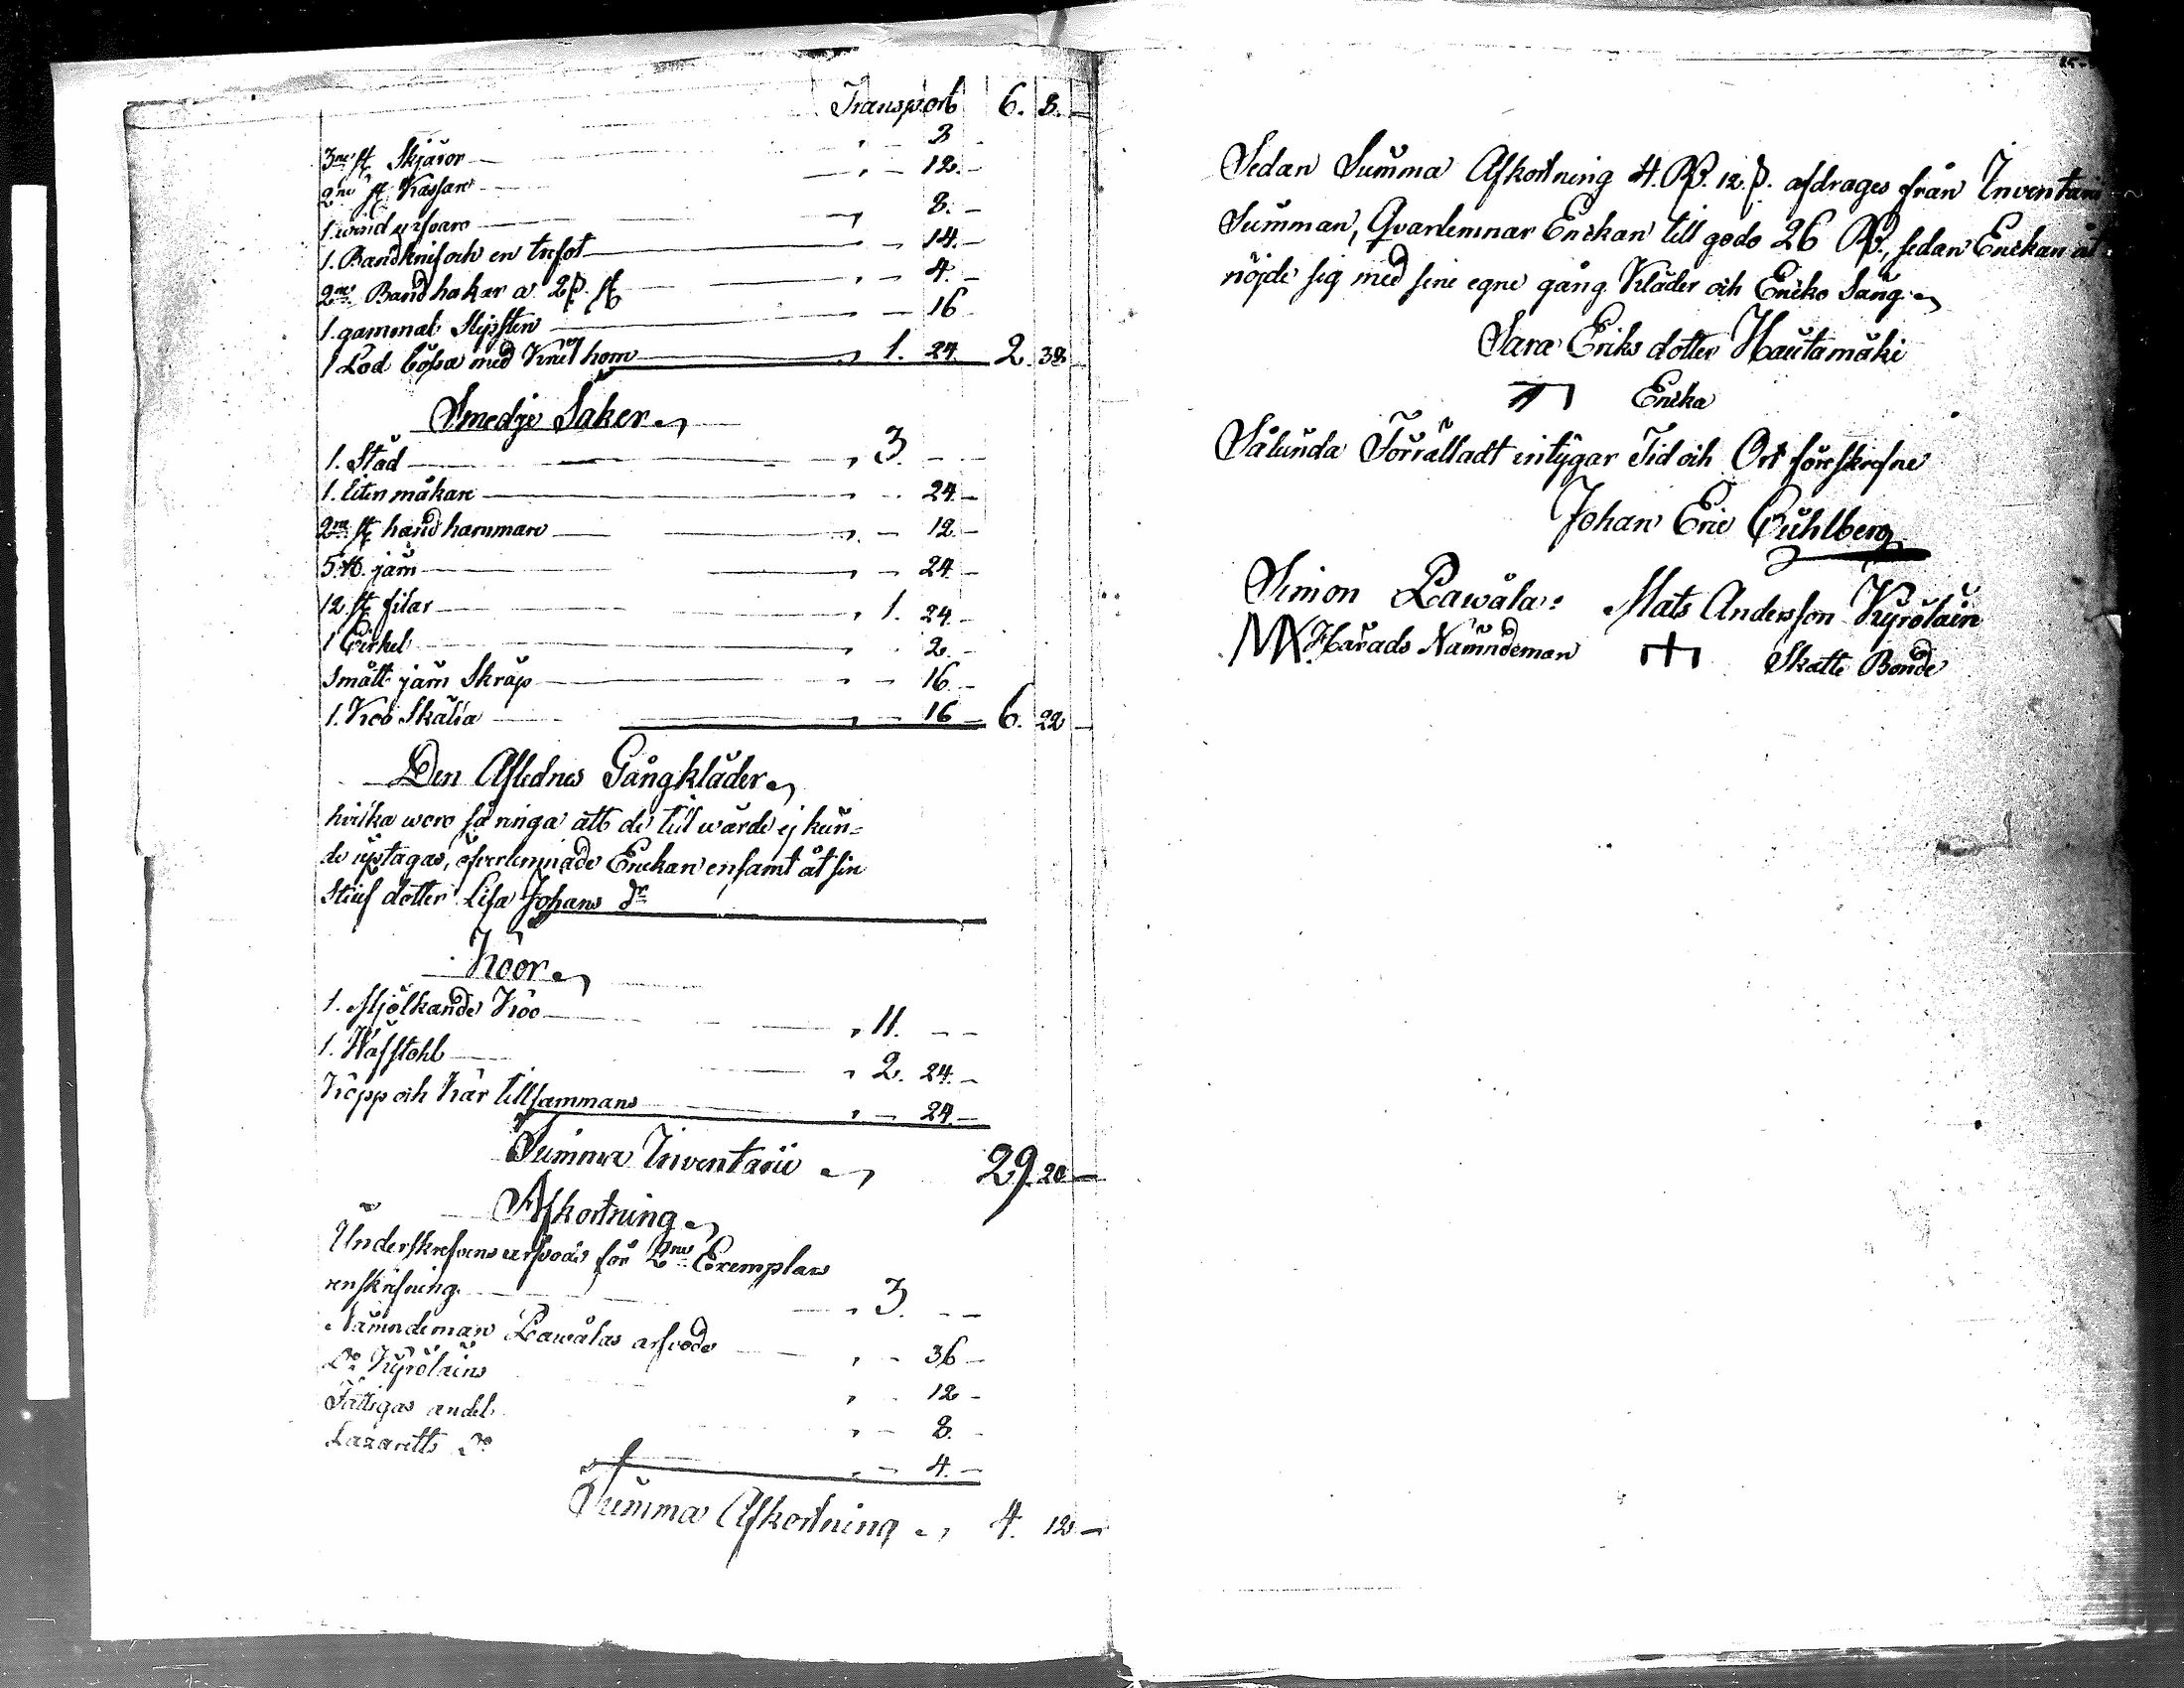 Transport 6. 8. –
3ne st Skjäror – 3 –
2ne st Kassar – 12. –
1. wrid 8. –
1. Bandknif och en trefot – 14. –
2ne Band hakar a 2ß. st – 4. –
1. gammal Slipsten – 16
1 Lod bössa med Krut horn 1. 24. 2. 38 –
Smedje Saker
1. Städ 3. – –
1. liten – 24. –
2ne st hand hammare – 12. –
5 ℔. järn – 24. –
12 st filar 1. 24. –
1 Cirkel 2. –
Smått järn Skräp – 16. –
1. Koo Skälla – 16 – 6. 22 –
Den Aflednes Gångkläder
hvilka woro så ringa att de till wärde ej kun=
de uptagas, öfverlemnade Enckan ensamt åt sin
Stiuf dotter Lisa Johans dr
Koor
1. Mjölkande Koo 11. – –
1. Wäfstohl 2. 24. –
Kopp och Kar tillsammans – 24. –
Summa Inventarii 29. 20 –
Afkortning
Underskrefvens arfvode för 2ne Exemplars
renskrifning 3. – –
Nämndeman Lawalas arfvode – 36 –
Do Kyröläins 12 –
Fattigas andel – 8. –
Lazaretts Do – 4. –
Summa Afkortning 4. 12 –
Sedan Summa Afkortning 4. Rß. 12. ß. afdrages från Inventarii
Summan, Qvarlemnar Enckan till godo 26 Rß., sedan Enckan åt
nöjde sig med sine egne gång Kläder och Encko Säng
Sara Eriks dotter Hautamäki
Encka
Sålunda Förrättadt intygar Tid och Ort föreskrefne
Johan Eric Cuhlberg
Simon Lawala: Mats Andersson Kyröläin
Härads Nämndeman Skatte Bonde